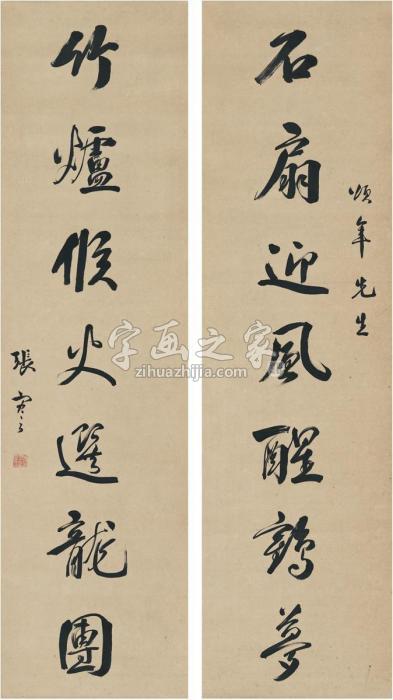 頌年先生
石扇迎風醒鶴夢
竹爐候火選龍團
張謇
字画之家
zihuazhijia.com